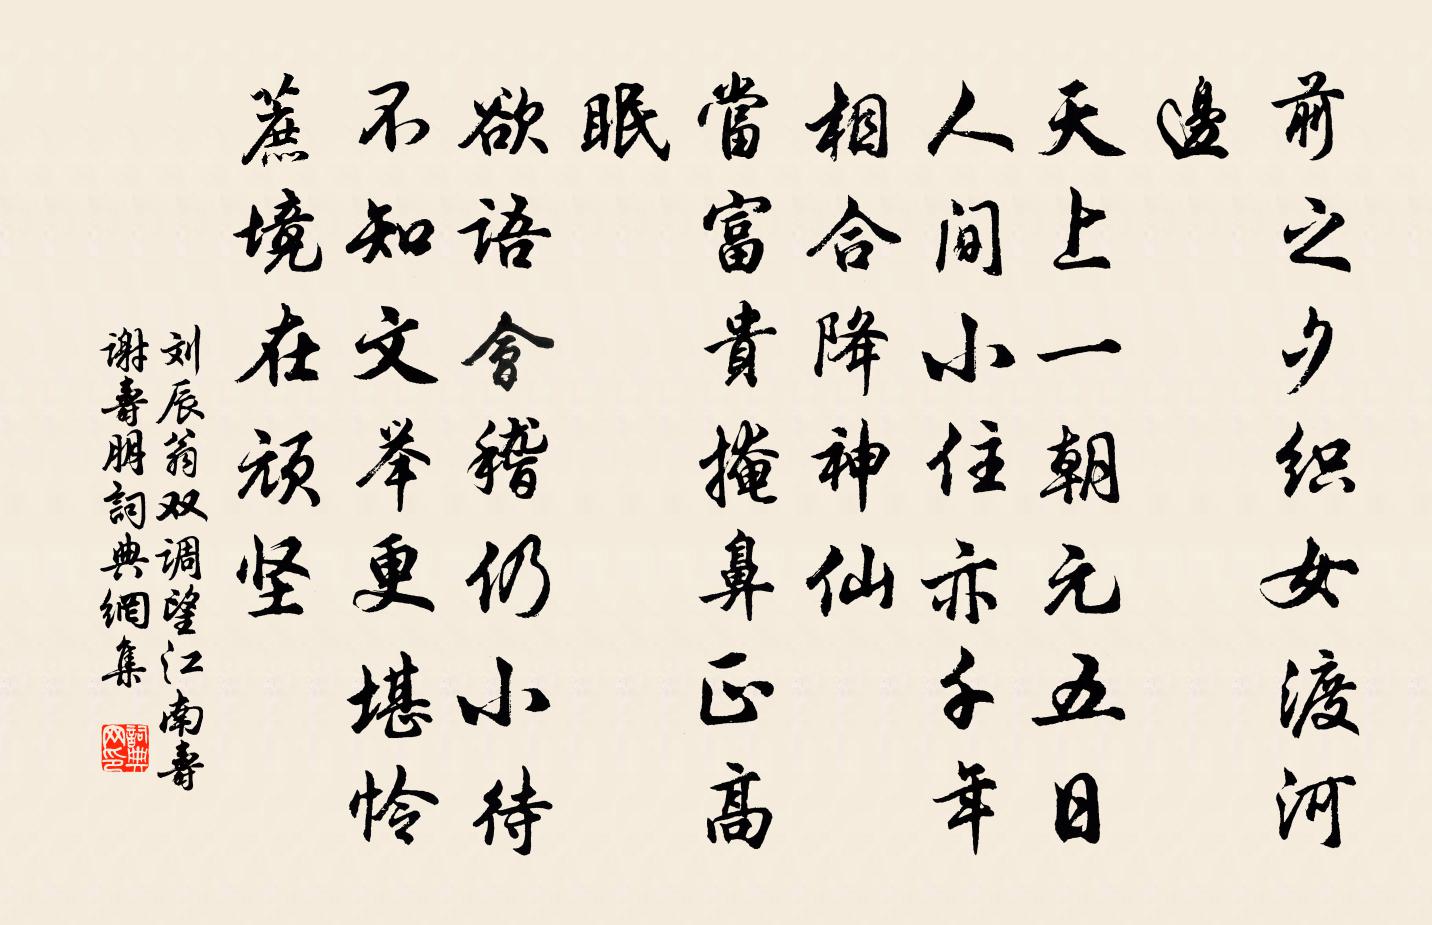 前之夕织女渡河
邊
天上一朝元五日
人间小住亦千年
相合降神仙
當富貴掩鼻正高
眠
欲語會稽仍小待
不知文举更堪怜
蔗境在顽坚
刘辰翁双调望江南壽
谢壽朋詞典網集
詞典网印